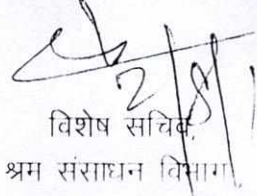 2/8/
विशेष सचिव,
श्रम संसाधन विभाग